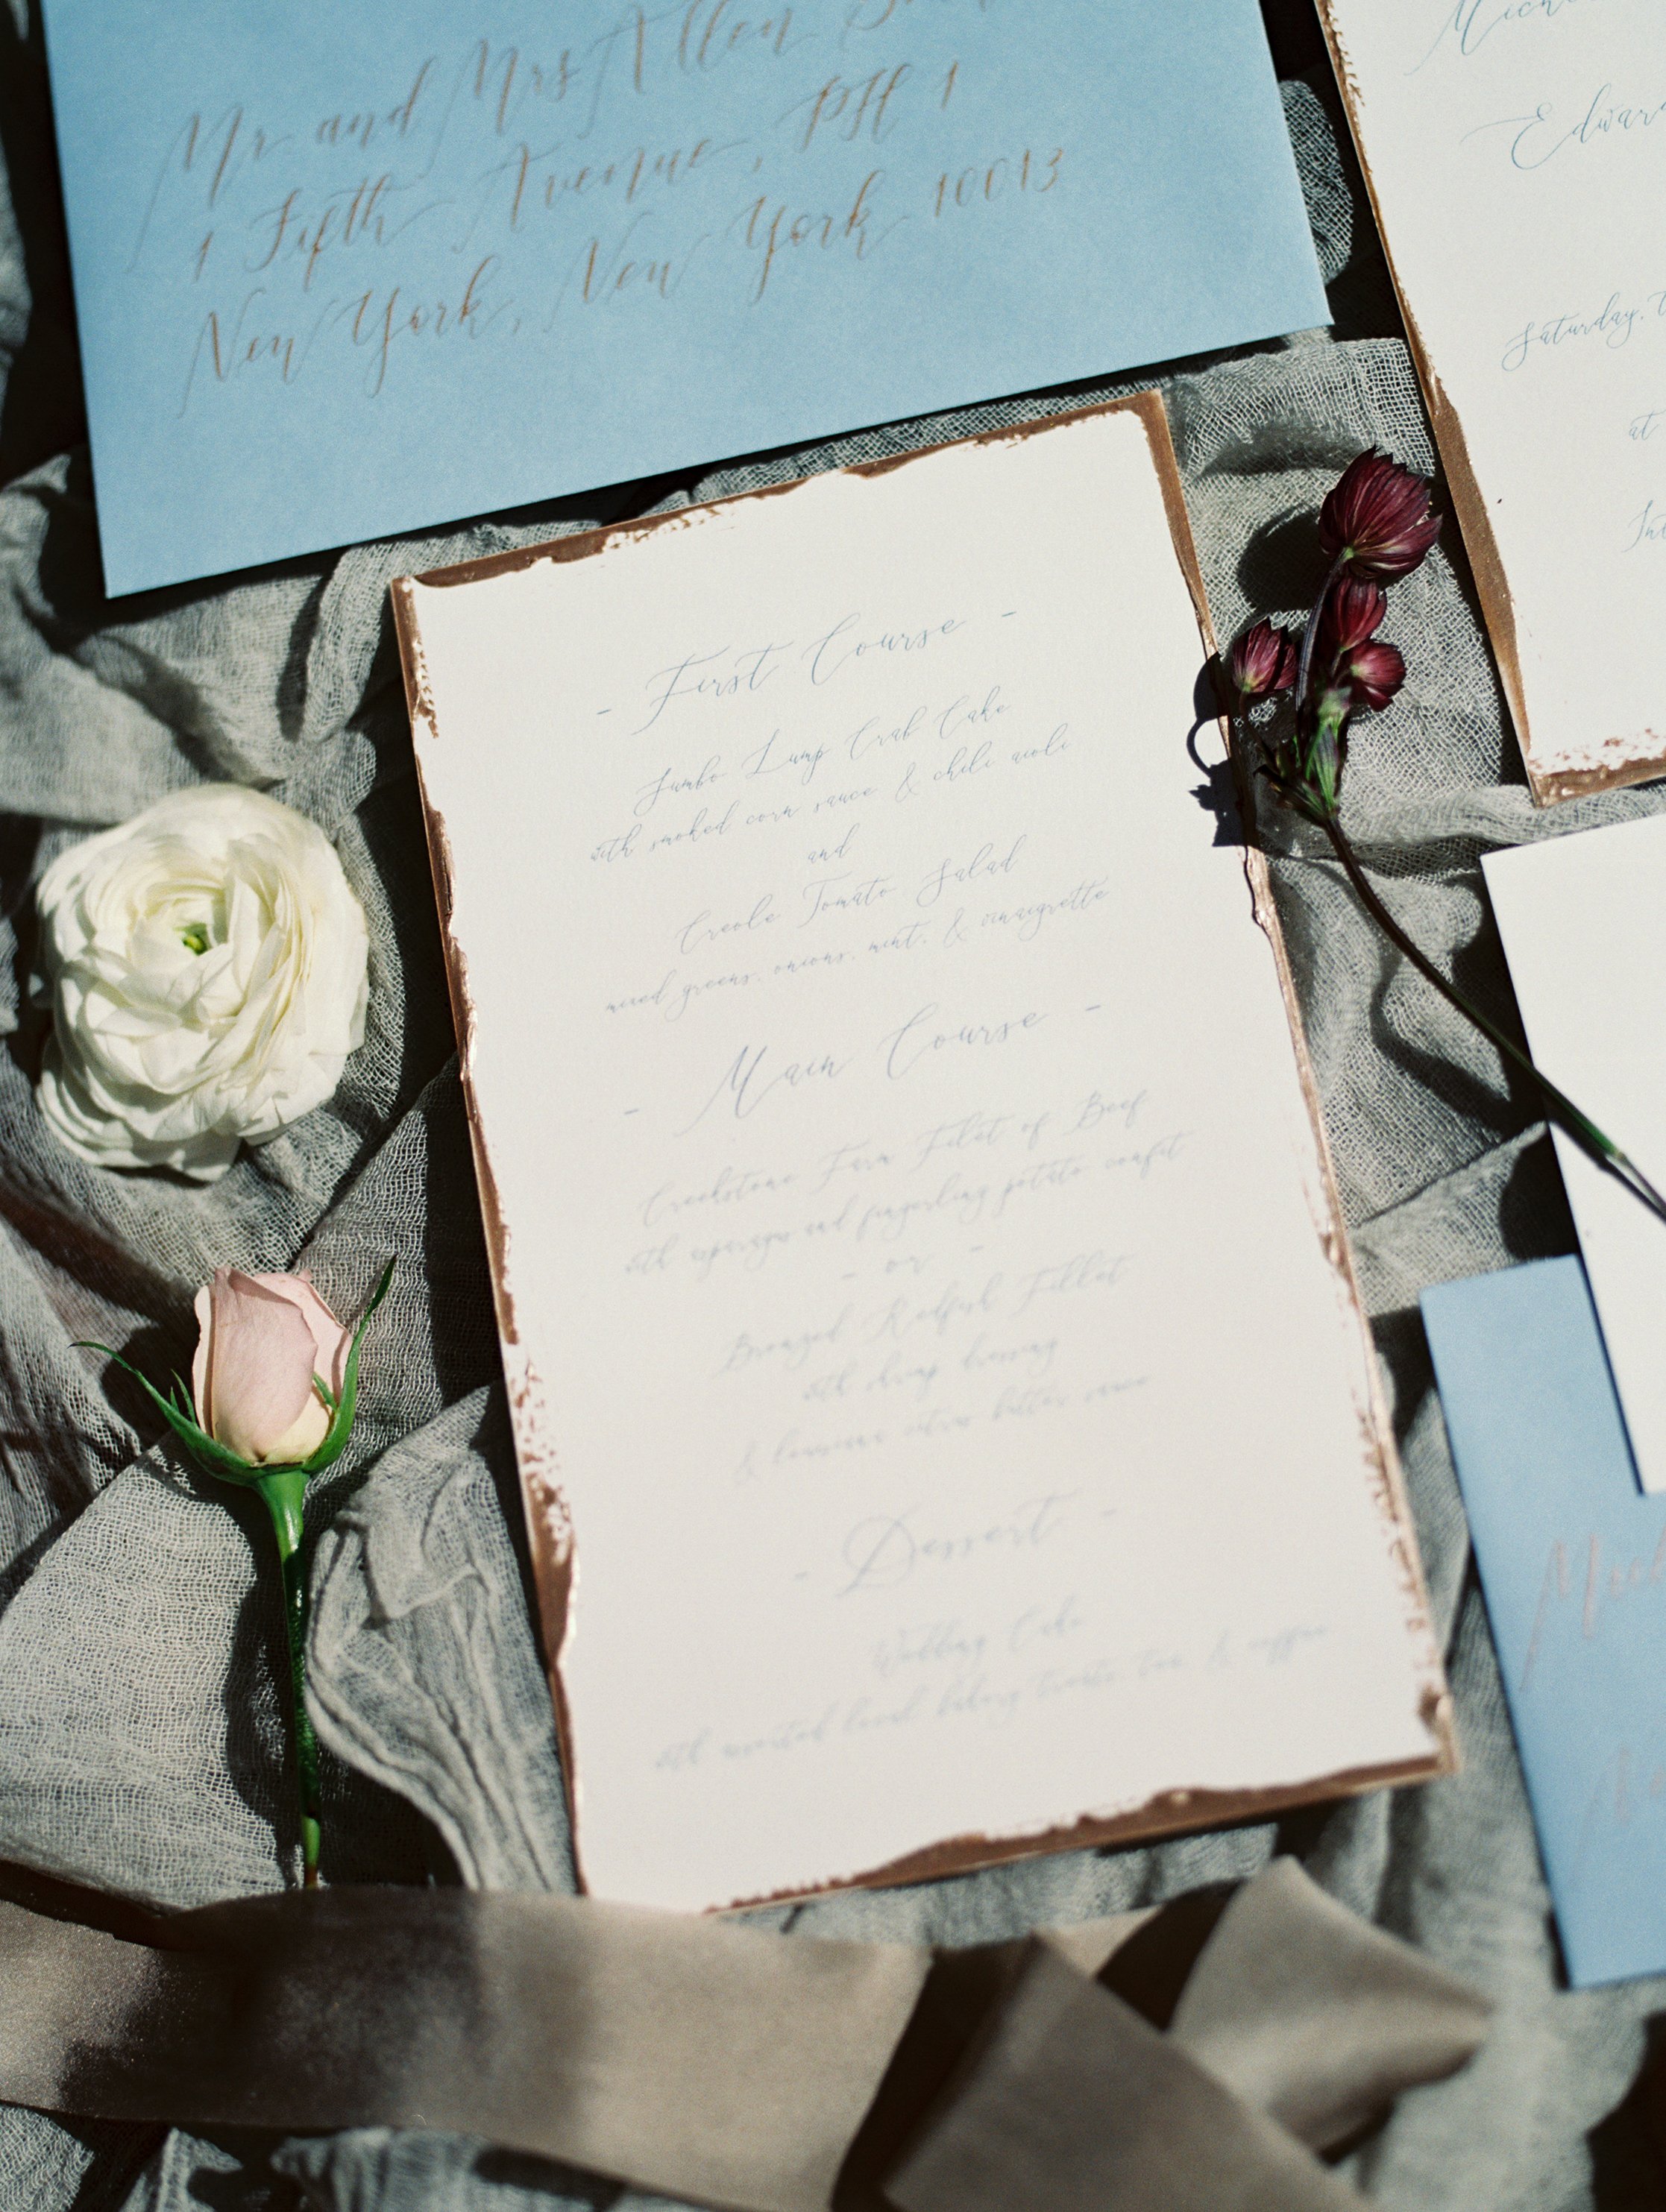 Mr and Mrs Allen
1 Fifth Avenue, PH 1
New York, New York 10013
Edwar
Saturday,
at
- First Course -
Jumbo Lump Crab Cake
with smoked corn sauce & chili aioli
and
Creole Tomato Salad
mixed greens, onions, mint, & vinaigrette
- Main Course -
Creekstone Farm Filet of Beef
with asparagus and fingerling potato confit
- or -
Bronzed Redfish Fillet
with shrimp dressing
& louisiana citrus butter sauce
- Dessert -
Wedding Cake
with assorted local bakery treats, tea & coffee